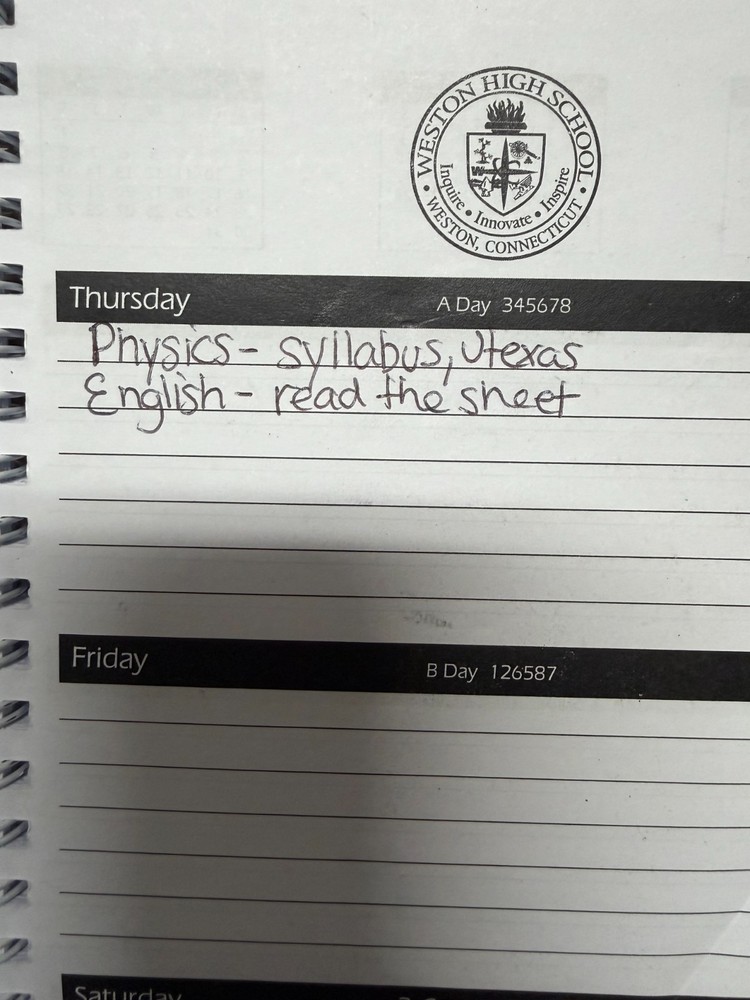 WESTON HIGH SCHOOL
Inquire • Innovate • Inspire
• WESTON, CONNECTICUT •
Thursday A Day 345678
Physics - syllabus, Utexas
English - read the sheet
Friday B Day 126587
Saturday